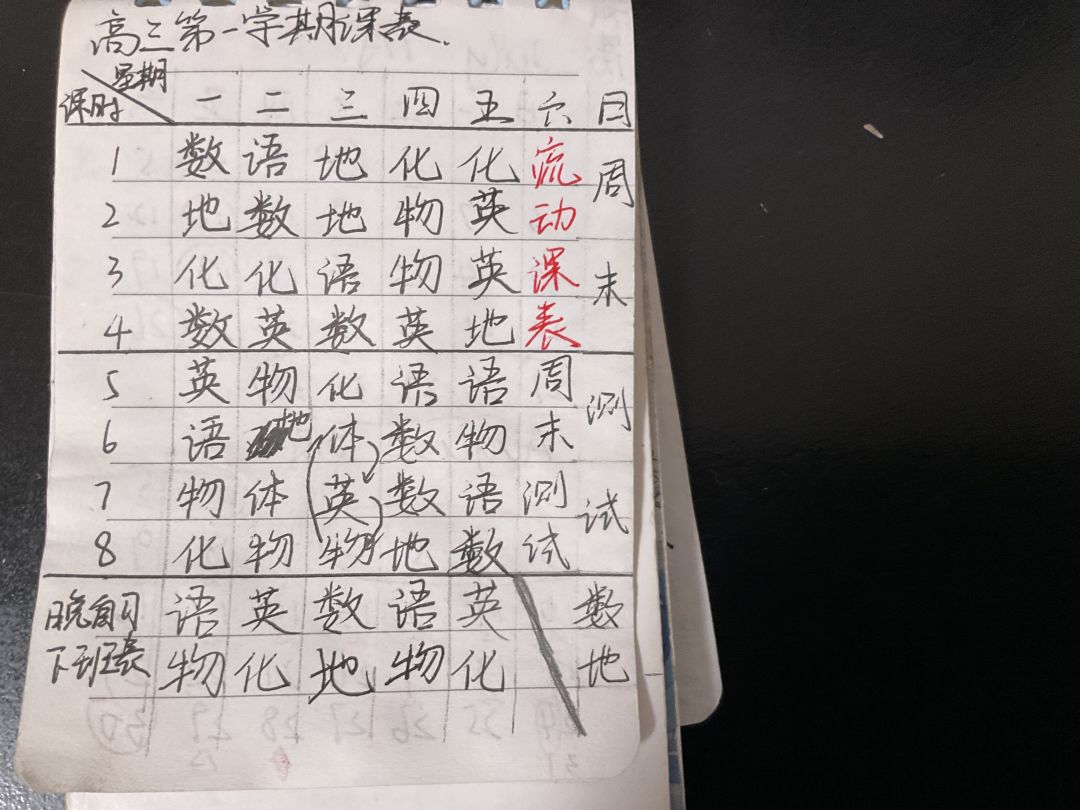 高三第一学期课表.
星期
课时 一 二 三 四 五 六 日
1 数 语 地 化 化 流 周
2 地 数 地 物 英 动
3 化 化 语 物 英 课 末
4 数 英 数 英 地 表
5 英 物 化 语 语 周 测
6 语 地 体 数 物 末
7 物 体 英 数 语 测 试
8 化 物 物 地 数 试
晚自习 语 英 数 语 英 数
下班表 物 化 地 物 化 地